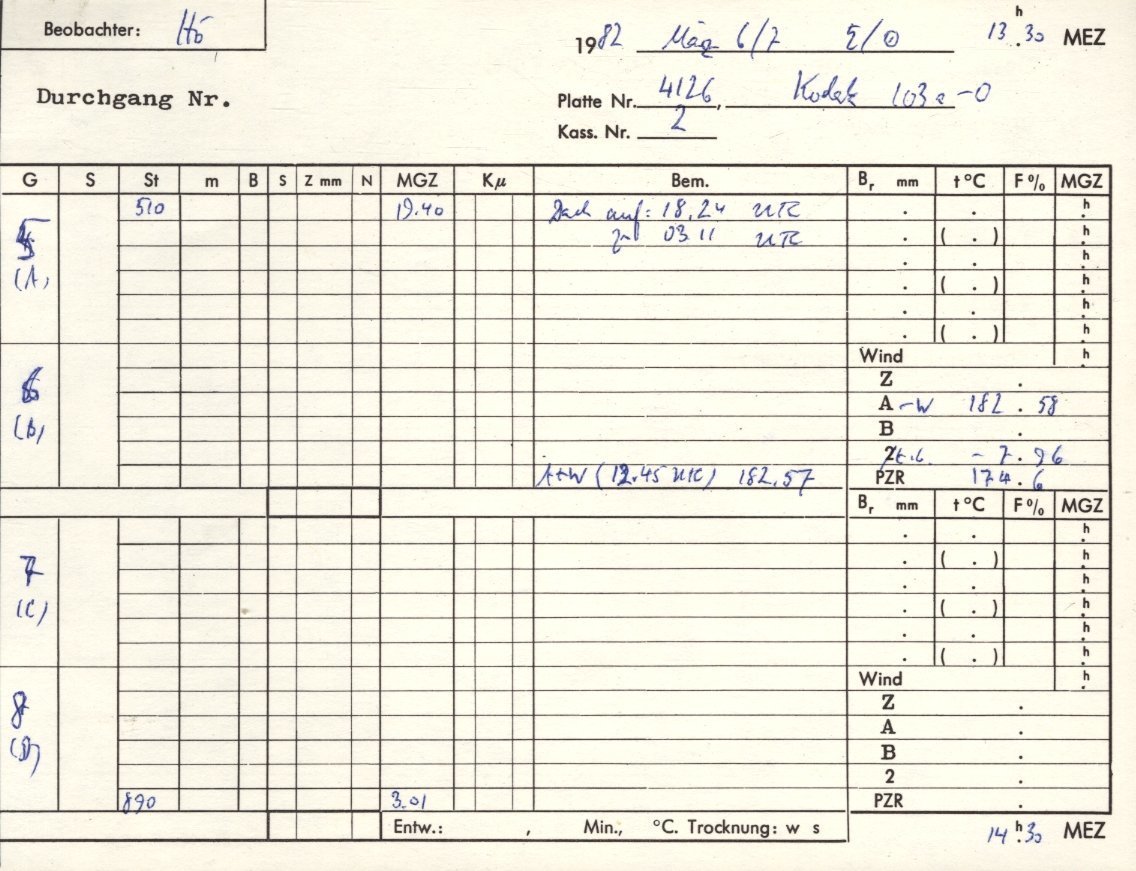 Beobachter: Hö
1982 März 6/7 5/0 13 h 30 MEZ
Durchgang Nr.
Platte Nr. 4126, Kodak 103a-O
Kass. Nr. 2
G S St m B S Z mm N MGZ Kμ Bem. Br mm t °C F % MGZ
510 19.40 Dach auf: 18.24 UTC . . h
5 zu 03.11 UTC . ( . ) h
(A) . . h
. ( . ) h
. . h
. ( . ) h
Wind h
6 Z .
A-W 182.58
(B) B .
- 7.96
A+W (12.45 UTC) 182.57 PZR 174.6
Br mm t °C F % MGZ
. . h
7 . ( . ) h
. . h
(C) . ( . ) h
. . h
. ( . ) h
Wind h
8 Z .
A .
(D) B .
2 .
890 3.01 PZR .
Entw.: , Min., °C. Trocknung: w s 14 h 30 MEZ